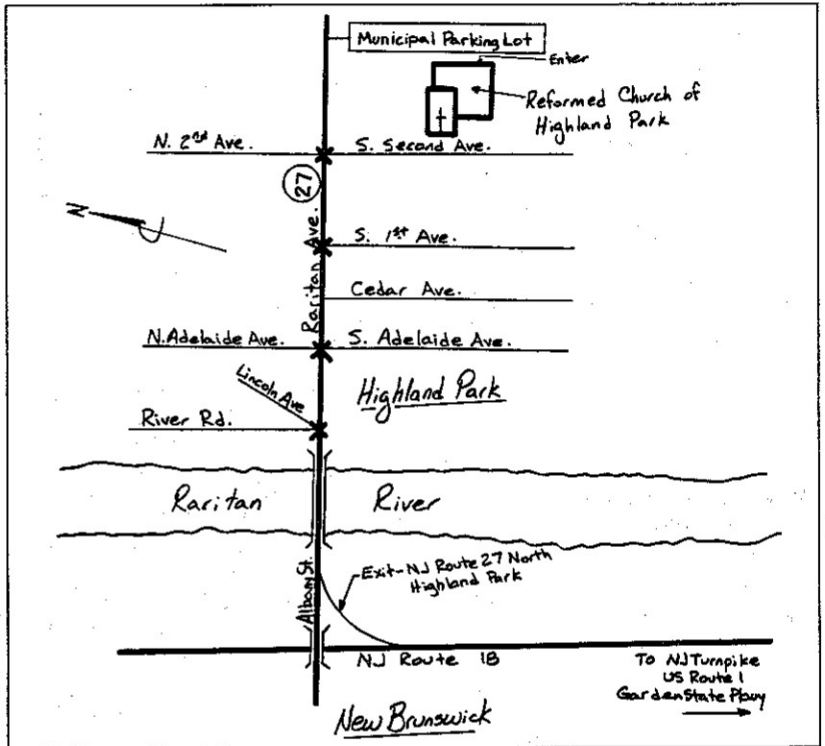 Municipal Parking Lot
Enter
Reformed Church of
Highland Park
N. 2nd Ave.
S. Second Ave.
27
N
Raritan Ave.
S. 1st Ave.
Cedar Ave.
N. Adelaide Ave.
S. Adelaide Ave.
Lincoln Ave
Highland Park
River Rd.
Raritan
River
Albany St.
Exit-NJ Route 27 North
Highland Park
NJ Route 18
To NJ Turnpike
US Route 1
Garden State Pkwy
New Brunswick